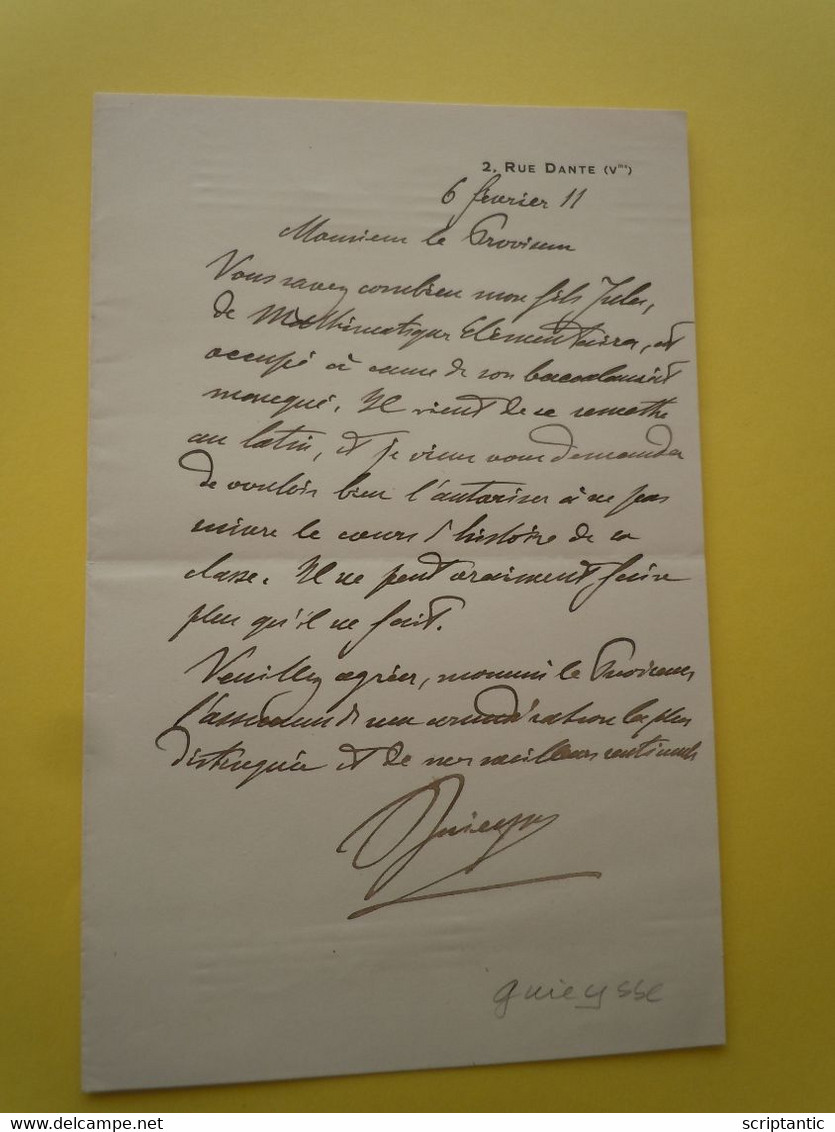 2, RUE DANTE (Vme)
6 février 11
Monsieur le Proviseur
Vous savez combien mon fils Jules,
de Mathématiques Elémentaires, est
occupé à cause de son baccalauréat
manqué. Il vient de se remettre
au latin, et je viens vous demander
de vouloir bien l'autoriser à ne pas
suivre le cours d'histoire de sa
classe. Il ne peut vraiment faire
plus qu'il ne fait.
Veuillez agréer, monsieur le Proviseur
l'assurance de ma considération la plus
distinguée et de mes meilleurs sentiments
Guieysse
guieysse
delcampe.net
scriptantic